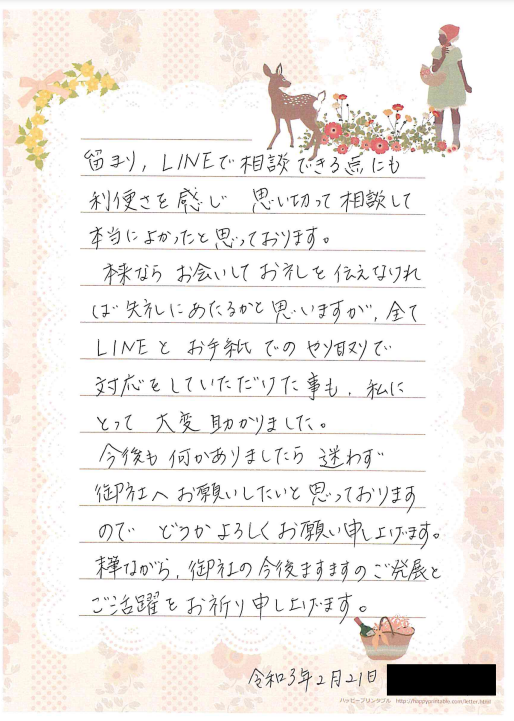 留まり，LINEで相談できる点にも
利便さを感じ　思い切って相談して
本当によかったと思っております。
本来なら　お会いして　お礼を伝えなけれ
ば　失礼にあたるかと思いますが，全て
LINEと　お手紙でのやり取りで
対応をしていただけた事も，私に
とって　大変助かりました。
今後も何かありましたら　迷わず
御社へお願いしたいと思っております
ので　どうかよろしくお願い申し上げます。
末筆ながら，御社の今後ますますのご発展と
ご活躍をお祈り申し上げます。
令和3年2月21日
ハッピープリンタブル　http://happyprintable.com/letter.html